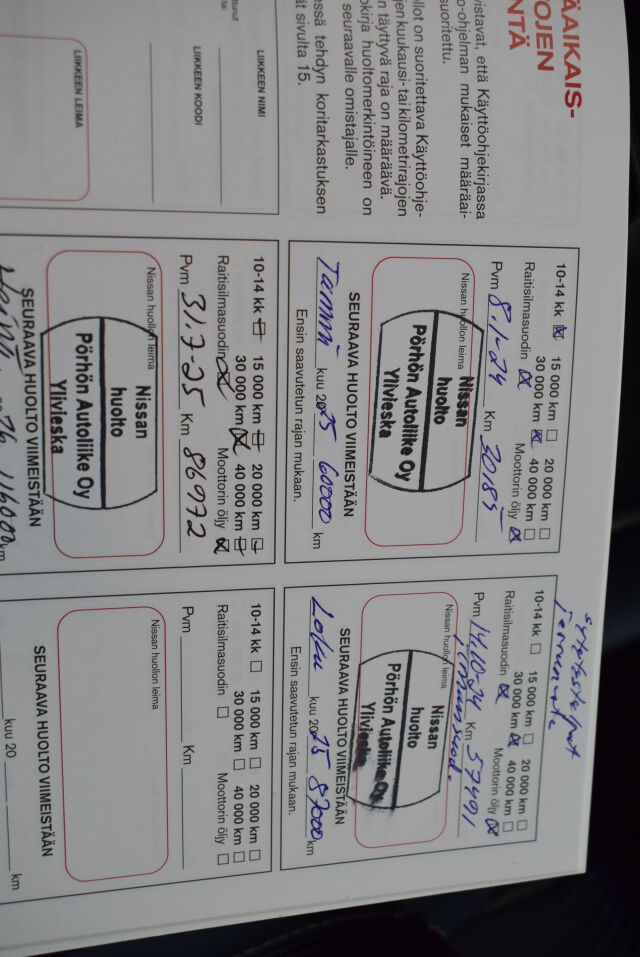 ÄAIKAIS-
TOJEN
NTÄ
vistavat, että Käyttöohjekirjassa
o-ohjelman mukaiset määräai-
suoritettu.
llot on suoritettava Käyttöohje-
jen kuukausi- tai kilometrirajojen
n täyttyvä raja on määräävä.
okirja huoltomerkintöineen on
seuraavalle omistajalle.
essä tehdyn koritarkastuksen
ät sivulta 15.
LIIKKEEN NIMI
LIIKKEEN KOODI
LIIKKEEN LEIMA
10-14 kk ☒ 15 000 km ☐ 20 000 km ☐
30 000 km ☒ 40 000 km ☐
Raitisilmasuodin ☒ Moottorin öljy ☒
Pvm 8.1-24 Km 30185
Nissan huollon leima
Nissan
huolto
Pörhön Autoliike Oy
Ylivieska
SEURAAVA HUOLTO VIIMEISTÄÄN
Tammi kuu 2025 60000 km
Ensin saavutetun rajan mukaan.
10-14 kk ☐ 15 000 km ☐ 20 000 km ☐
30 000 km ☒ 40 000 km ☐
Raitisilmasuodin ☒ Moottorin öljy ☒
Pvm 14.10-24 Km 57491
Nissan huollon leima
Nissan
huolto
Pörhön Autoliike Oy
Ylivieska
SEURAAVA HUOLTO VIIMEISTÄÄN
Loka kuu 2025 87000 km
Ensin saavutetun rajan mukaan.
10-14 kk 15 000 km 20 000 km
30 000 km ☒ 40 000 km
Raitisilmasuodin ☒ Moottorin öljy ☒
Pvm 31.7-25 Km 86972
Nissan huollon leima
Nissan
huolto
Pörhön Autoliike Oy
Ylivieska
SEURAAVA HUOLTO VIIMEISTÄÄN
Heinä 26 116000 km
10-14 kk ☐ 15 000 km ☐ 20 000 km ☐
30 000 km ☐ 40 000 km ☐
Raitisilmasuodin ☐ Moottorin öljy ☐
Pvm Km
Nissan huollon leima
SEURAAVA HUOLTO VIIMEISTÄÄN
kuu 20 km